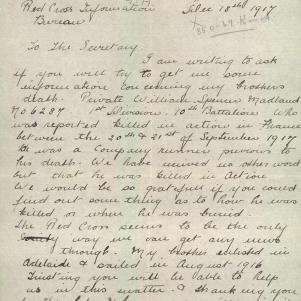 Red Cross Information Dec 18th 1917
Bureau
To The Secretary
I am writing to ask
if you will try to get me some
information concerning my brothers
death. Private William Spencer Maitland
No 6287 1st Division. 10th Battalion. Who
was reported killed in action in France
between the 20th & 21st of September 1917
He was a Company runner previous to
his death. We have received no other word
but that he was killed in Action
We would be so grateful if you could
find out some thing as to how he was
killed, or when he was buried.
The Red Cross seems to be the only
way we can get any news
through. My brother enlisted in
Adelaide & sailed in August 1916
Trusting you will be able to help
us in this matter & thanking you